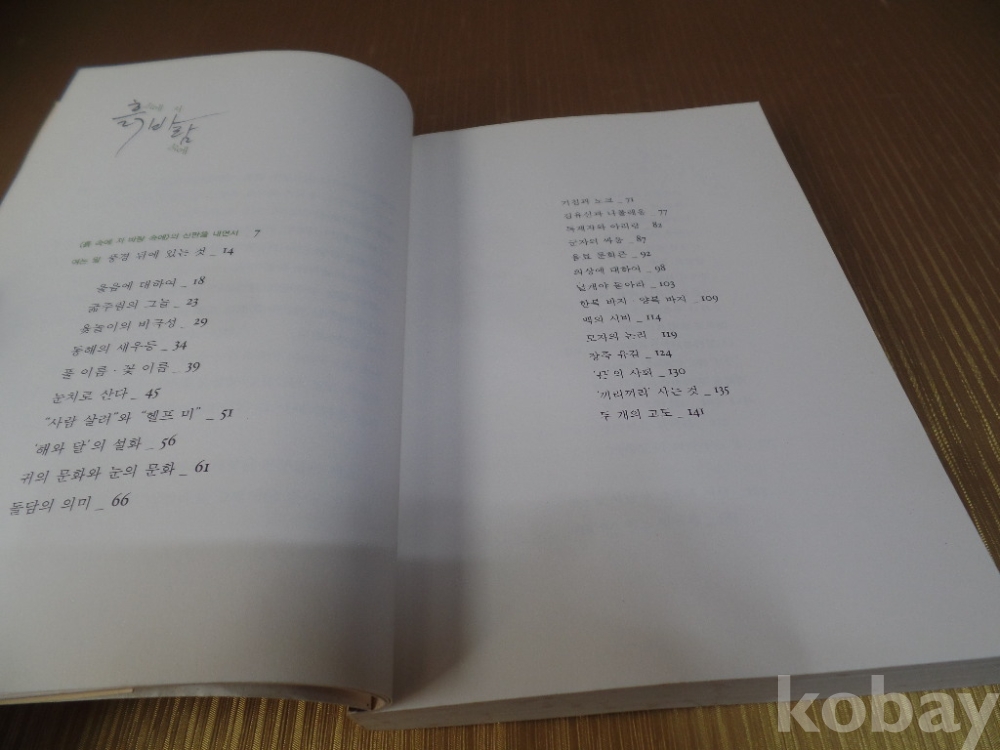 흙 속에 저
바람
속에
《흙 속에 저 바람 속에》의 신판을 내면서 7
여는 말 풍경 뒤에 있는 것 _ 14
울음에 대하여 _ 18
굶주림의 그늘 _ 23
윷놀이의 비극성 _ 29
동해의 새우등 _ 34
풀 이름·꽃 이름 _ 39
눈치로 산다 _ 45
"사람 살려"와 "헬프 미" _ 51
'해와 달'의 설화 _ 56
귀의 문화와 눈의 문화 _ 61
돌담의 의미 _ 66
기침과 노크 _ 71
김유신과 나폴레옹 _ 77
독재자와 아리랑 _ 82
군자의 싸움 _ 87
음료 문화론 _ 92
의상에 대하여 _ 98
날개야 돋아라 _ 103
한복 바지·양복 바지 _ 109
백의 시비 _ 114
모자의 논리 119
장죽 유감 _ 124
'끈'의 사회 _ 130
'끼리끼리' 사는 것 _ 135
두 개의 고도 _ 141
kobay